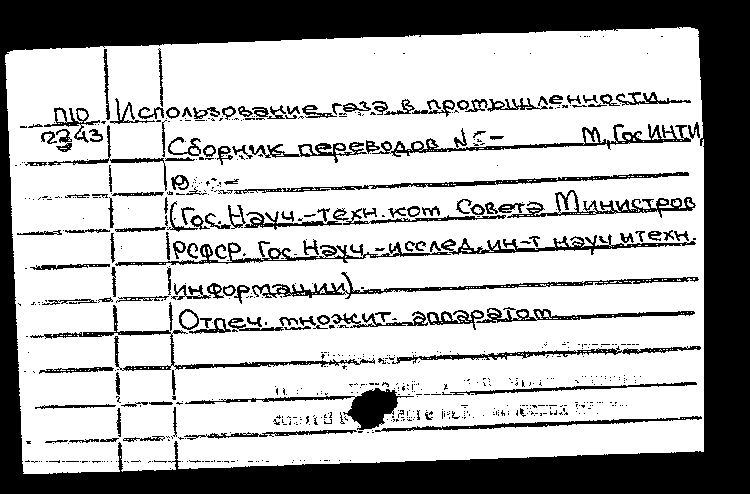 П10 Использование газа в промышленности.
2343 Сборник переводов № М, ГосИНТИ,
19
(Гос. Науч.-техн. ком. Совета Министров
РСФСР. Гос. Науч.-исслед. ин-т науч и техн.
информации).
Отпеч. множит. аппаратом